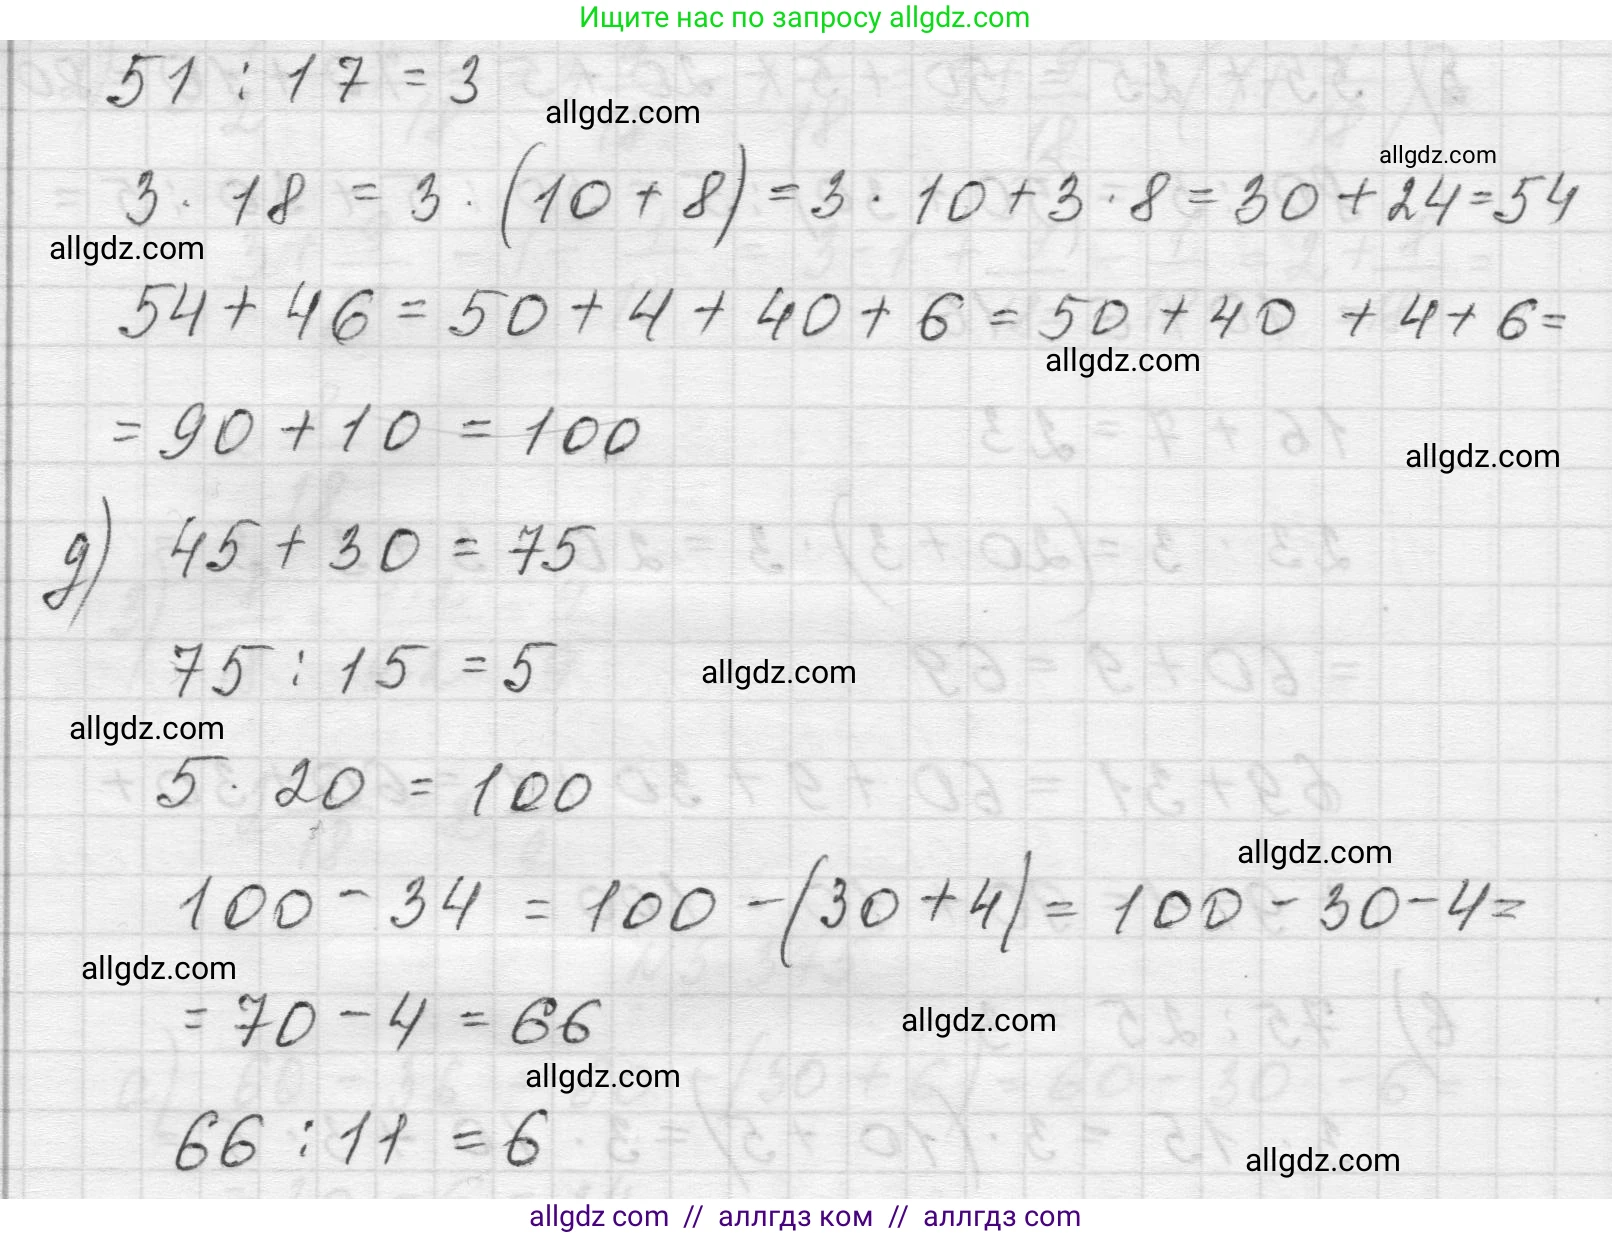 Ищите нас по запросу allgdz.com
51 : 17 = 3
allgdz.com
allgdz.com
3 · 18 = 3 · (10 + 8) = 3 · 10 + 3 · 8 = 30 + 24 = 54
allgdz.com
54 + 46 = 50 + 4 + 40 + 6 = 50 + 40 + 4 + 6 =
allgdz.com
= 90 + 10 = 100
allgdz.com
д) 45 + 30 = 75
75 : 15 = 5
allgdz.com
allgdz.com
5 · 20 = 100
allgdz.com
100 - 34 = 100 - (30 + 4) = 100 - 30 - 4 =
allgdz.com
= 70 - 4 = 66
allgdz.com
allgdz.com
66 : 11 = 6
allgdz.com
allgdz com // аллгдз ком // аллгдз com